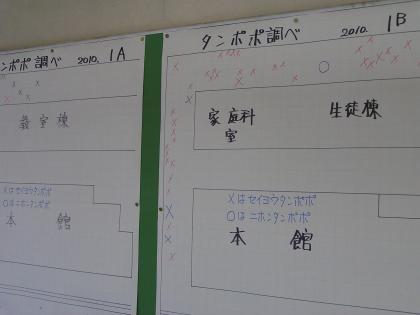 ンポポ調べ 2010. 1A
教室棟
×はセイヨウタンポポ
○はニホンタンポポ
本館
タンポポ調べ 2010. 1B
家庭科
室
生徒棟
×はセイヨウタンポポ
○はニホンタンポポ
本館